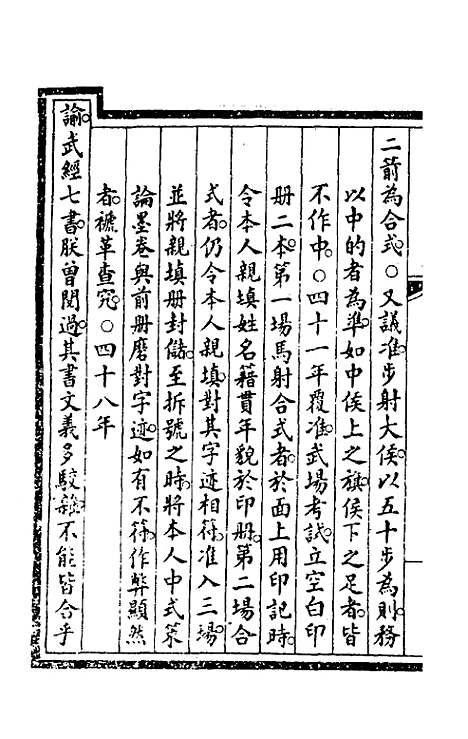 二箭為合式。○又議准。步射大侯。以五十步為則。務
以中的者為準。如中侯上之旗。侯下之足者。皆
不作中。○四十一年覆准。武場考試。立空白印
册二本。第一場馬射合式者。於面上用印記時。
令本人親填姓名籍貫年貌於印册。第二場合
式者。仍令本人親填。對其字迹相符。准入三場。
並將親填册封儲。至拆號之時。將本人中式策
論墨卷與前册磨對字迹。如有不符。作弊顯然
者。褫革查究。○四十八年
諭。武經七書。朕曾閱過。其書文義多駮雜。不能皆合乎